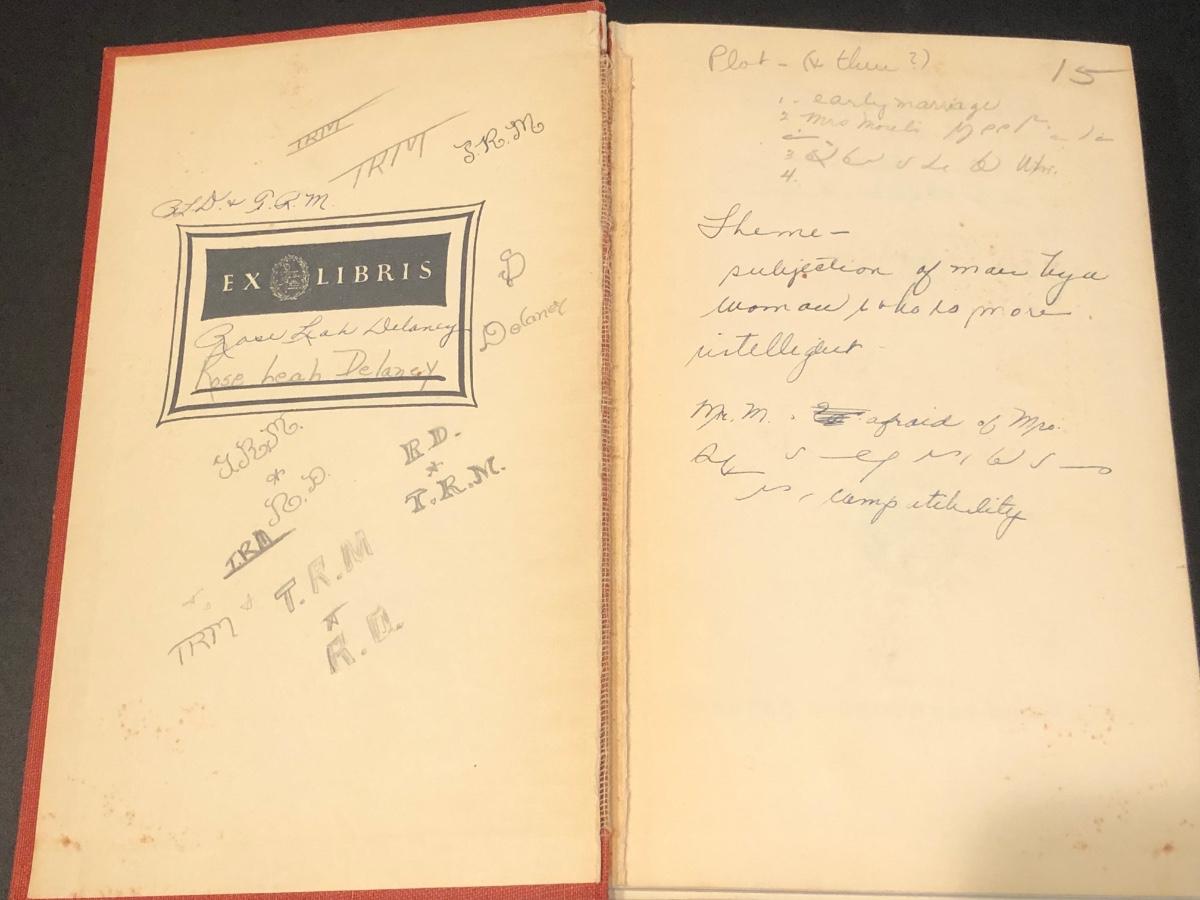 TRM
TRM
T.R.M
R.L.D. & T.R.M.
EX LIBRIS
Rose Leah Delaney
Rose Leah Delaney
D
Delaney
T.R.M.
&
R.D.
R.D.
&
T.R.M.
TRM
T.R.M
&
R.D.
TRM &
15
Plot - (& theme?)
1. early marriage
2. Mrs Morel's
3
4.
Theme -
subjection of man by a
woman who is more
intelligent
Mr. M. afraid of Mrs.
compatibility